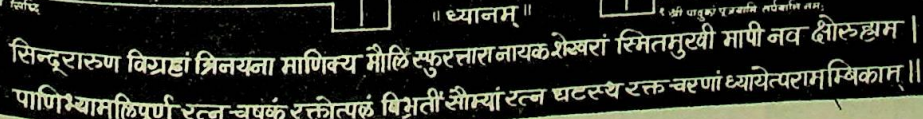 सिद्धि
॥ ध्यानम् ॥
१ श्री पादुकां पूजयामि तर्पयामि नमः
सिन्दूरारुण विग्रहां त्रिनयना माणिक्य मौलिं स्फुरत्तारा नायक शेखरां स्मितमुखी मापी नव क्षोरुहाम ।
पाणिभ्यामलिपूर्ण रत्न-चषकं रक्तोत्पलं बिभ्रतीं सौम्यां रत्न घटस्थ रक्त चरणां ध्यायेत्पराम म्बिकाम् ॥